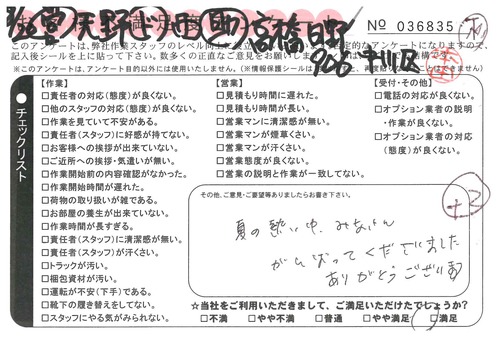 No 036835
このアンケートは、弊社作業スタッフのレベル向上
記入後シールを上に貼って下さい。お客様の
※このアンケートは、アンケート目的以外には使用いたしません。
チェックリスト
【作業】
□責任者の対応(態度)が良くない。
□他のスタッフの対応(態度)が良くない。
□作業を見ていて不安がある。
□責任者(スタッフ)に好感が持てない。
□お客様への挨拶が出来ていない。
□ご近所への挨拶・気遣いが無い。
□作業開始前の内容確認がなかった。
□作業開始時間が遅れた。
□荷物の取り扱いが雑である。
□お部屋の養生が出来ていない。
□作業時間が長すぎる。
□責任者(スタッフ)に清潔感が無い。
□責任者(スタッフ)が汗くさい。
□トラックが汚い。
□梱包資材が汚い。
□運転が不安(下手)である。
□靴下の履き替えをしてない。
□スタッフにやる気がみられない。
【営業】
□見積もり時間に遅れた。
□見積もり時間が長い。
□営業マンに清潔感が無い。
□営業マンが煙草くさい。
□営業マンが汗くさい。
□営業態度が良くない。
□営業の説明と作業が一致してない。
【受付・その他】
□電話の対応が良くない。
□オプション業者の説明
・作業が良くない。
□オプション業者の対応
(態度)が良くない。
その他、ご意見・ご要望等ありましたらお書き下さい。
夏の熱い中、みなさん
がんばってくださいました
ありがとうございます
+2
☆当社をご利用いただきまして、ご満足いただけたでしょうか?
□不満 □やや不満 □普通 □やや満足 □満足